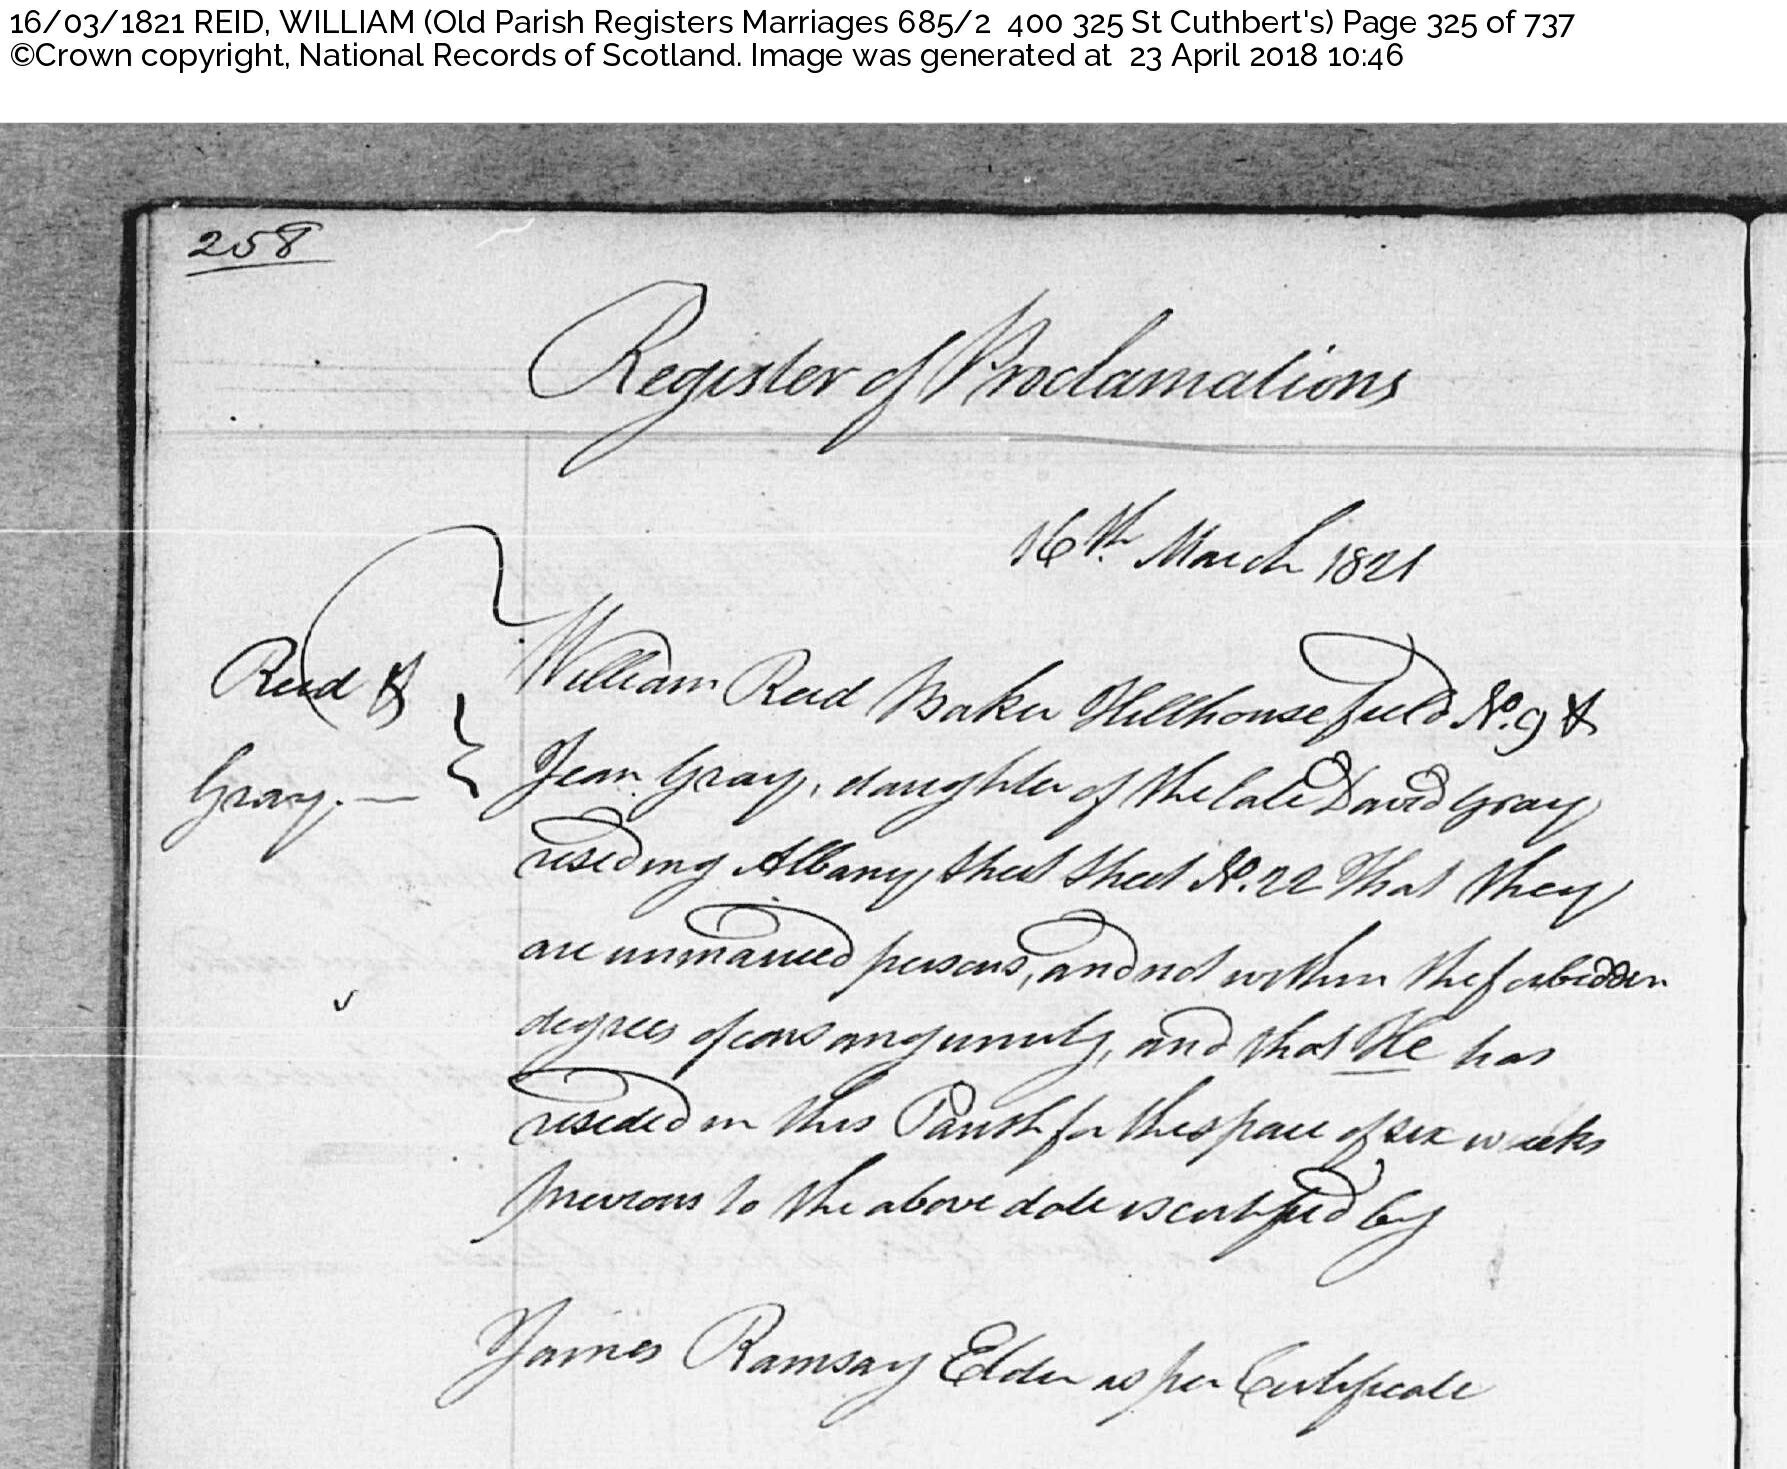 16/03/1821 REID, WILLIAM (Old Parish Registers Marriages 685/2 400 325 St Cuthbert's) Page 325 of 737
©Crown copyright, National Records of Scotland. Image was generated at 23 April 2018 10:46
258
Register of Proclamations
16th. March 1821
Reid &
Gray. —
William Reid Baker Hillhousefield No. 9 &
Jean Gray, daughter of the late David Gray
residing Albany Street Street No. 22 That they
are unmarried persons, and not within the forbidden
degrees of consanguinity, and that He has
resided in this Parish for the space of six weeks
previous to the above date is certified by
James Ramsay Elder as per Certificate